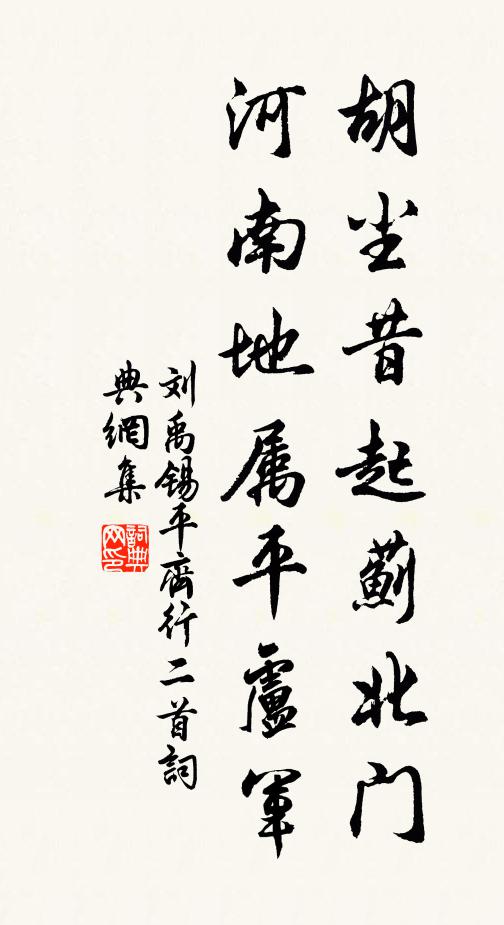 胡尘昔起蓟北门
河南地属平卢军
刘禹锡平齐行二首詞
典網集
詞典网印